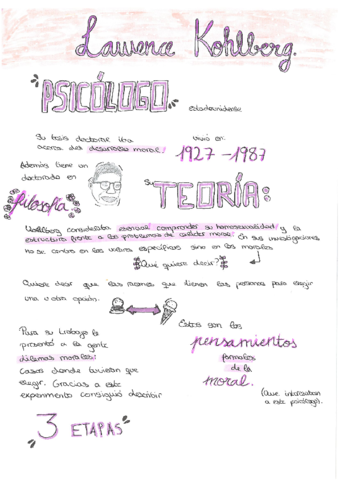 Lawrence Kohlberg.
PSICÓLOGO
estadounidense
Su tesis doctoral iba
acerca del desarrollo moral!
vivió en:
1927 - 1987
Además tiene un
doctorado en
filosofía.
su
TEORÍA:
Kohlberg consideraba esencial comprender su y la
estructura frente a los problemas de carácter moral. En sus investigaciones
no se centra en los valores específicos sino en los morales
¿Qué quiere decir?
Quiere decir que las razones que tienen las personas para elegir
una u otra opción.
Para su trabajo le
presentó a la gente
dilemas morales:
Casos donde tuvieran que
elegir. Gracias a este
experimento consiguió describir
Estos son los
pensamientos
formales
de la
moral.
(Que interesaban
a este psicólogo).
3 ETAPAS